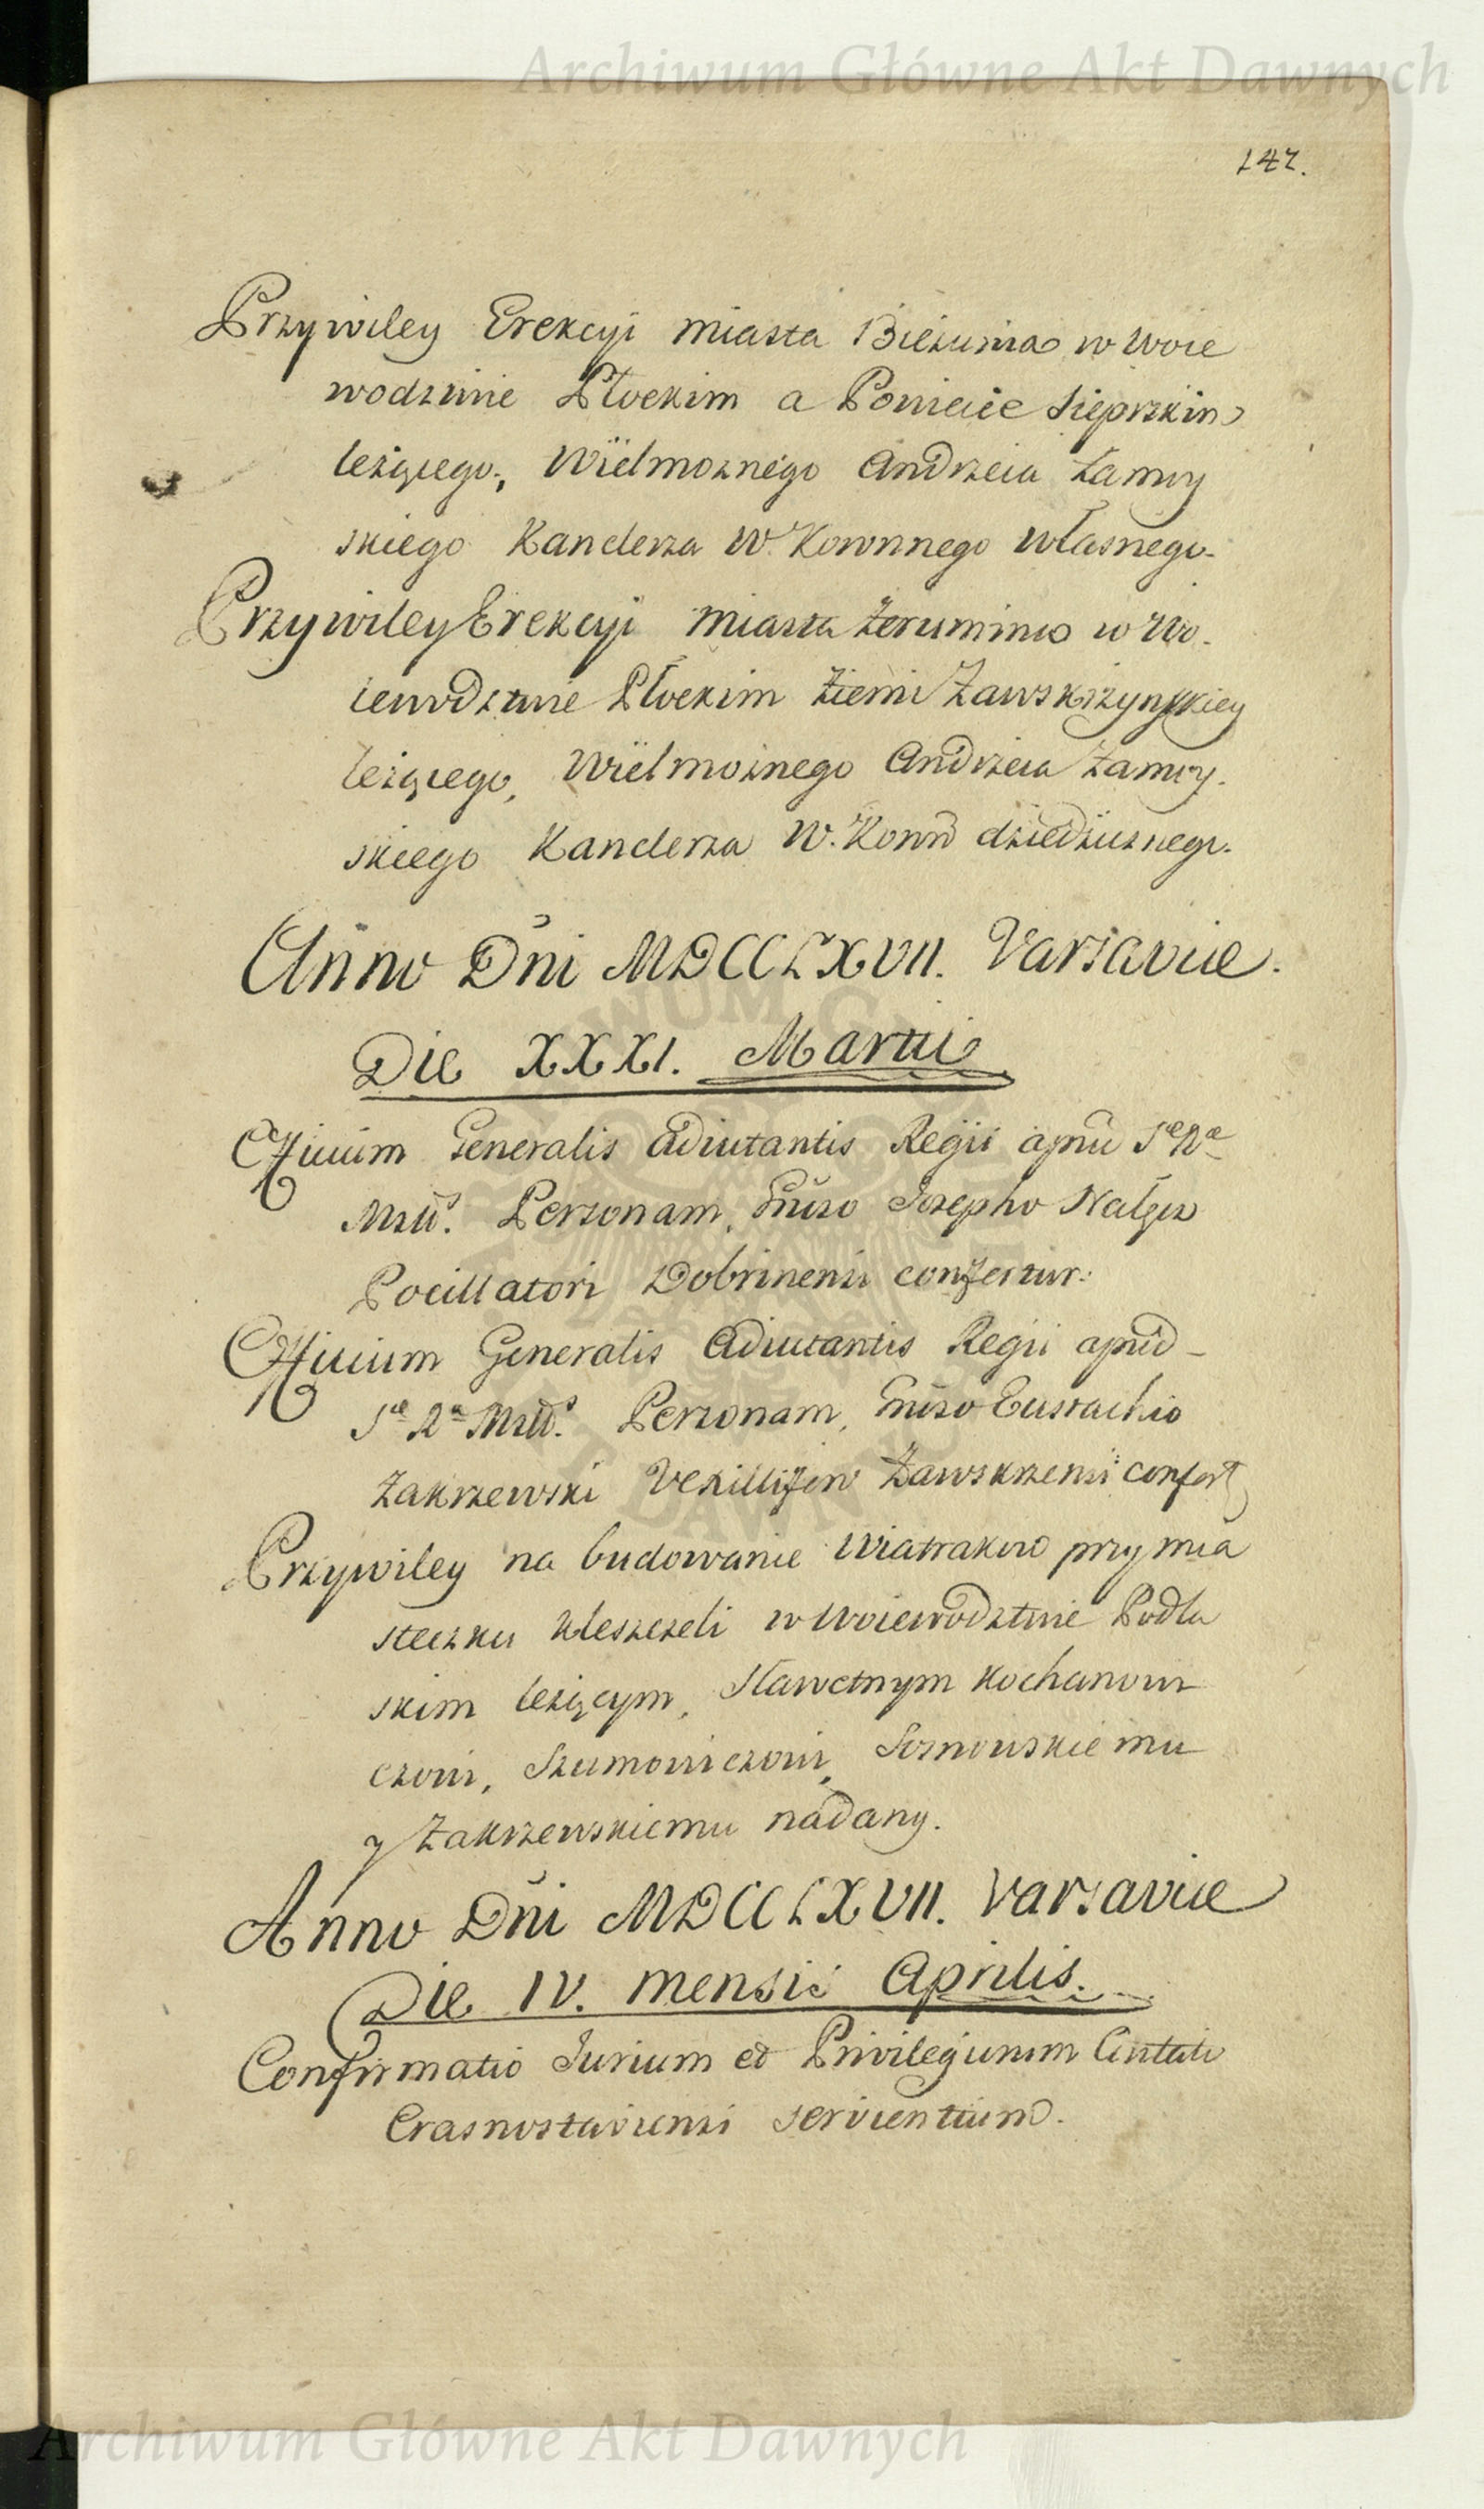 Archiwum Główne Akt Dawnych
147.
Przywiley Erekcyi miasta Bieżunia w Woie
wodztwie Płockim a Powiecie Sieprskim
leżącego, Wielmożnego Andrzeia Zamoy
skiego Kanclerza W. Koronnego własnego.
Przywiley Erekcyi Miasta Żeromina w Wo-
iewodztwie Płockim Ziemi Zawskrzynskiey
leżącego, Wielmożnego Andrzeia Zamoy-
skiego Kanclerza W. Koron dziedzicznego.
Anno Dni MDCCLXVII. Varsaviæ.
Die XXXI. Martii
Officium Generalis Adiutantis Regii apud Sæ Ræ
Mttis. Personam, Gnoso Josepho Nałęcz
Pocillatori Dobrinensi confertur.
Officium Generalis Adiutantis Regii apud
Sæ Ræ Mttis. Personam, Gnoso Eustachio
Zakrzewski Vexillifero Zawskrzensi confert
Przywiley na budowanie Wiatrakow przy mia
steczku Kleszczeli w Woiewodztwie Podla
skim leżącym, Sławetnym Kochanowi
czowi, Szumowiczowi, Sosnowskiemu
y Zakrzewskiemu nadany.
Anno Dni MDCCLXVII. Varsaviæ
Die IV. Mensis Aprilis.
Confirmatio Jurium et Privilegiorum Civitati
Crasnostaviensi servientium.
Archiwum Główne Akt Dawnych